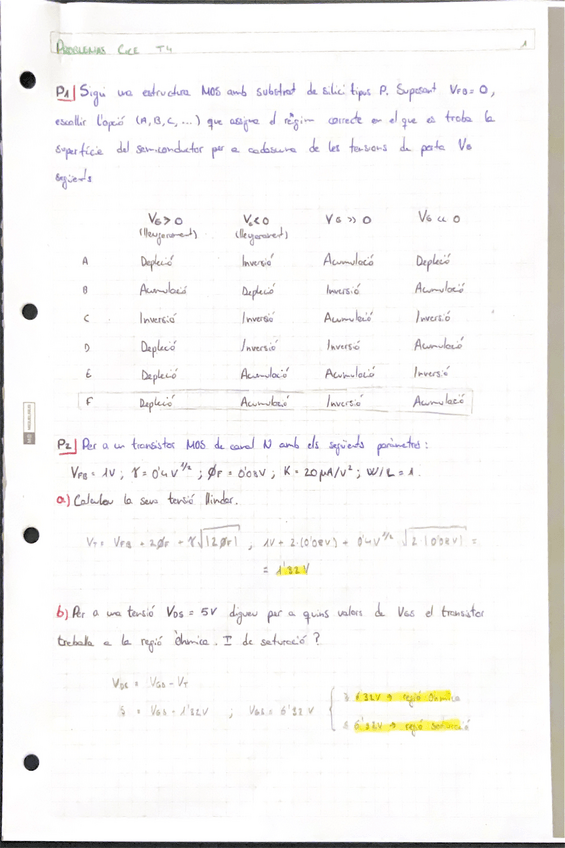 PROBLEMAS CIRE T4 1
P1 Sigui una estructura MOS amb substrat de silici tipus P. Suposant VFB = 0,
escollir l'opció (A, B, C, ...) que assigna el règim correcte en el que es troba la
superfície del semiconductor per a cadascuna de les tensions de porta VG
següents
VG > 0 VG < 0 VG >> 0 VG << 0
(lleugerament) (lleugerament)
A Depleció Inversió Acumulació Depleció
B Acumulació Depleció Inversió Acumulació
C Inversió Inversió Acumulació Inversió
D Depleció Inversió Inversió Acumulació
E Depleció Acumulació Acumulació Inversió
F Depleció Acumulació Inversió Acumulació
P2 Per a un transistor MOS de canal N amb els següents paràmetres:
VFB = 1V ; γ = 0'4 V^1/2 ; ØF = 0'08V ; K = 20 μA/V² ; W/L = 1.
a) Calculeu la seva tensió llindar.
VT = VFB + 2ØF + γ√|2ØF| , 1V + 2·(0'08V) + 0'4V^1/2 √2·|0'08V| =
= 1'32V
b) Per a una tensió VDS = 5V digueu per a quins valors de VGS el transistor
treballa a la regió òhmica. I de saturació?
VDS = VGS - VT
5 = VGS - 1'32V ; VGS = 6'32V
6'32V → regió òhmica
6'32V → regió saturació